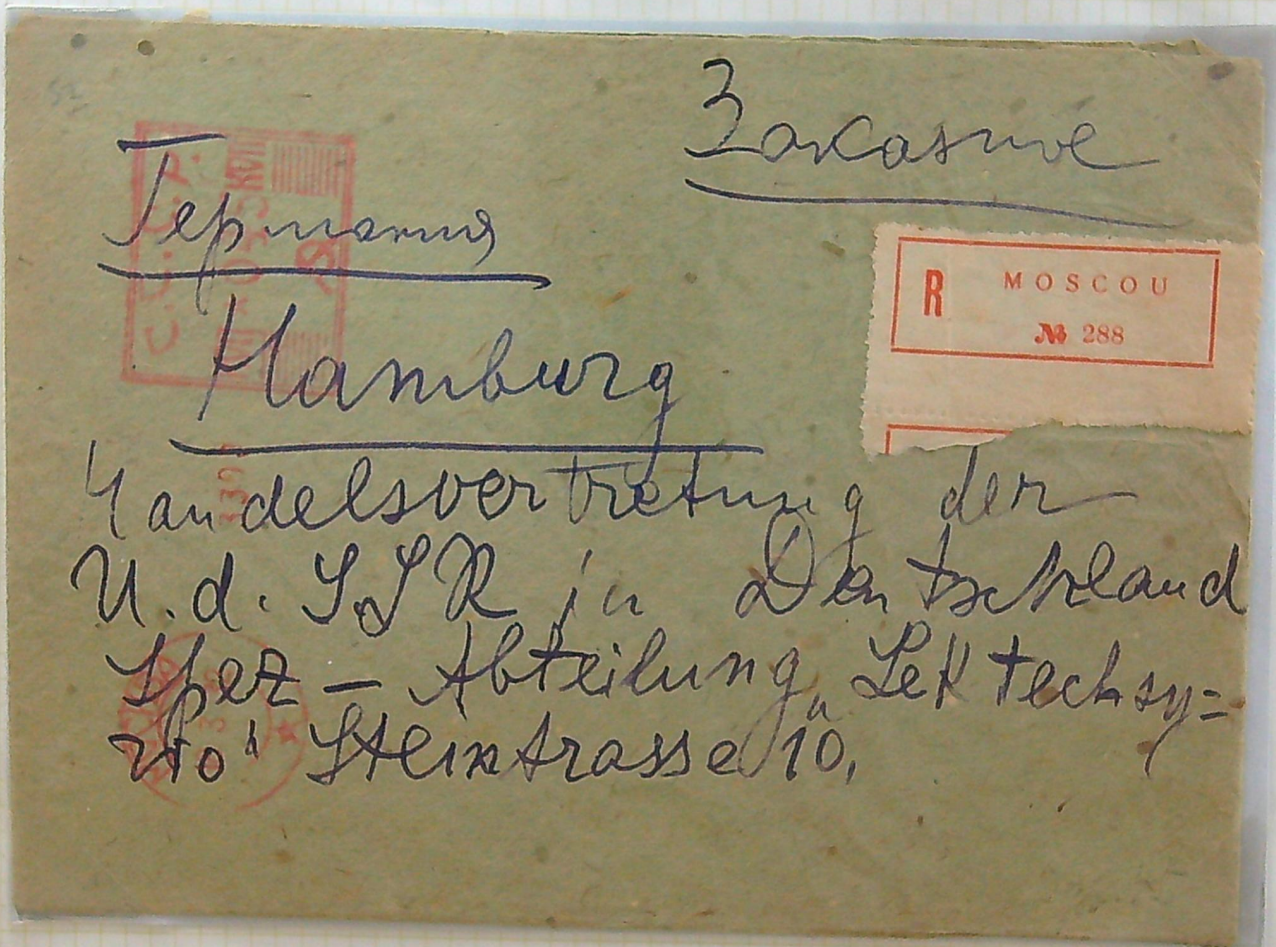 Заказное
Германия
Hamburg
R MOSCOU
№ 288
Handelsvertretung der
U.d. SSR in Deutschland
Spez – Abteilung „Lektechsy=
rio“ Steinstrasse 10.
С.С.С.Р.
КОП